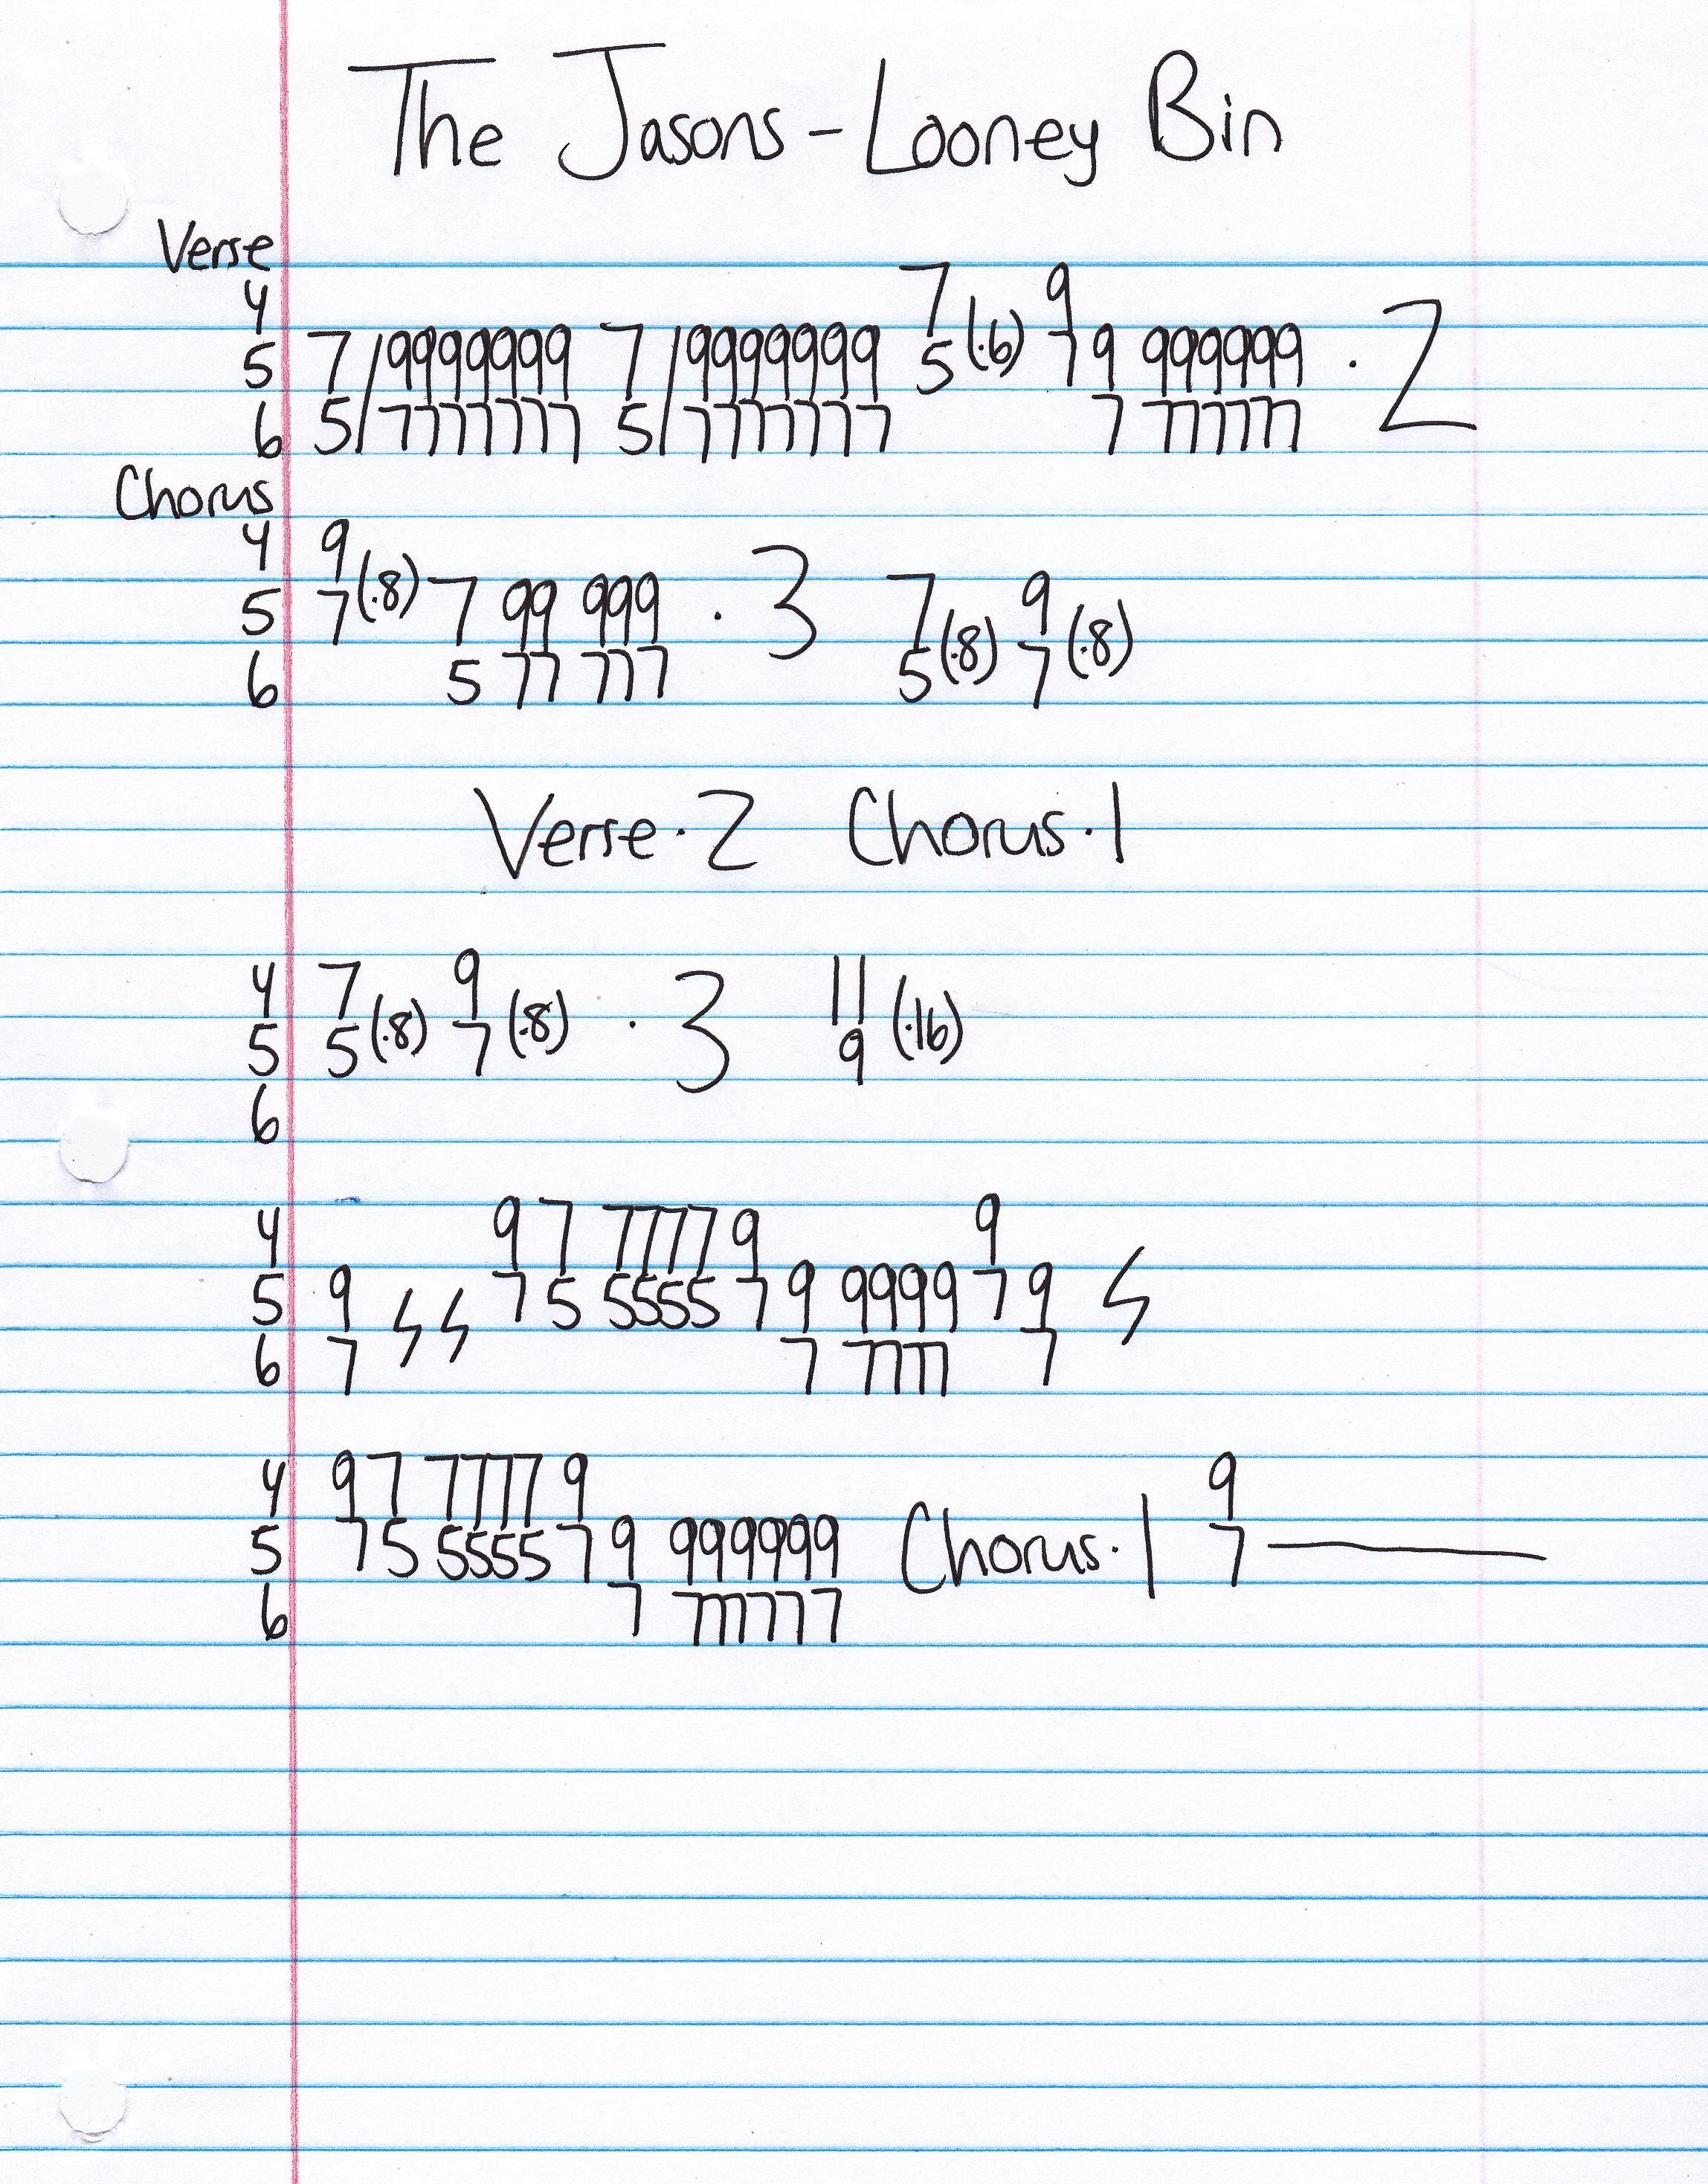 The Jasons - Looney Bin
Verse
4 7 9
5 7/9999999 7/9999999 5(·6) 7 9 999999 · 2
6 5/7777777 5/7777777 7 777777
Chorus
4 9
5 7(·8) 7 99 999 · 3 7(·8) 9(·8)
6 5 77 777 5 7
Verse·2 Chorus·1
4 7 9 11
5 5(·8) 7(·8) · 3 9(·16)
6
4 9 7 7777 9 9
5 9 7 5 5555 7 9 9999 7 9
6 7 7 7777 7
4 9 7 7777 9 9
5 7 5 5555 7 9 999999 Chorus·1 7
6 7 777777